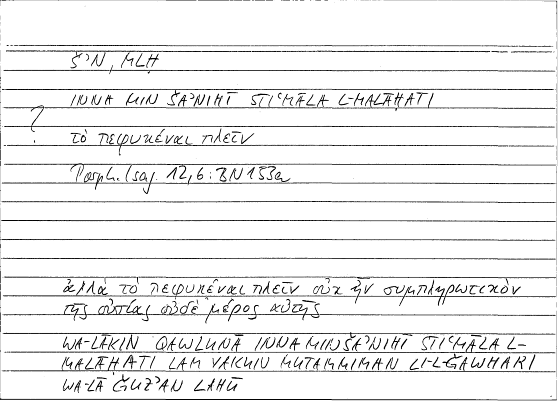 ŠʾN, MLḤ
INNA MIN ŠAʾNIHĪ STIʿMĀLA L-MALĀḤATI
?
τὸ πεφυκέναι πλεῖν
Porph. Isag. 12,6: BN 153a
ἀλλὰ τὸ πεφυκέναι πλεῖν οὐκ ἦν συμπληρωτικὸν
τῆς οὐσίας οὐδὲ μέρος αὐτῆς
WA-LĀKIN QAWLUNĀ INNA MIN ŠAʾNIHĪ STIʿMĀLA L-
MALĀḤATI LAM YAKUN MUTAMMIMAN LI-L-ĞAWHARI
WA-LĀ ĞUZʾAN LAHŪ